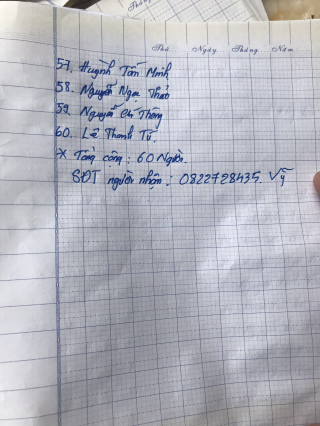 Thứ Ngày Tháng Năm
57. Huỳnh Tấn Minh
58. Nguyễn Ngọc Thảo
59. Nguyễn Chí Thông
60. Lê Thanh Tú
X Tổng cộng : 60 Người.
SĐT người nhận : 0822728435. Vỹ